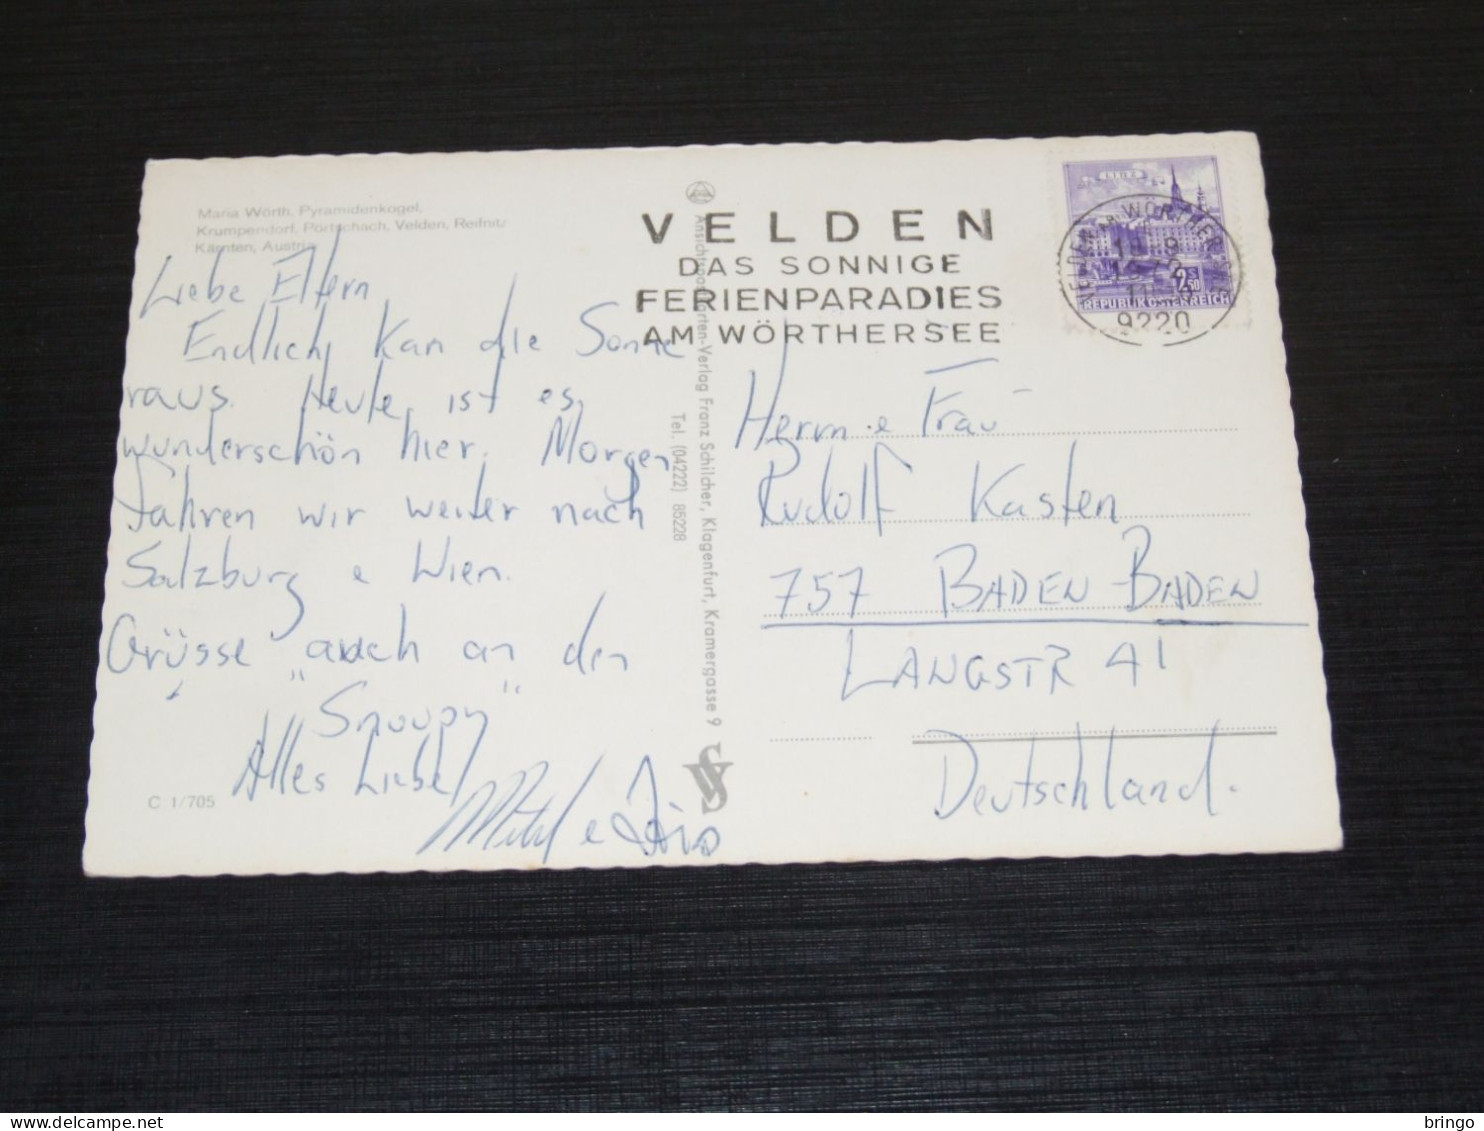 Maria Wörth, Pyramidenkogel,
Krumpendorf, Pörtschach, Velden, Reifnitz
Kärnten, Austria
Liebe Eltern
Endlich kan die Sonne
raus. Heute ist es
wunderschön hier. Morgen
fahren wir weiter nach
Salzburg e Wien.
Grüsse auch an den
"Snoopy"
Alles Liebe
C 1/705
Ansichtspostkarten-Verlag Franz Schilcher, Klagenfurt, Kramergasse 9
Tel. (04222) 85228
VELDEN
DAS SONNIGE
FERIENPARADIES
AM WÖRTHERSEE
LINZ
2.50
REPUBLIK ÖSTERREICH
VELDEN AM WÖRTHER SEE
9220
Herrn e Frau
Rudolf Kasten
757 BADEN-BADEN
LANGSTR 41
Deutschland.
bringo